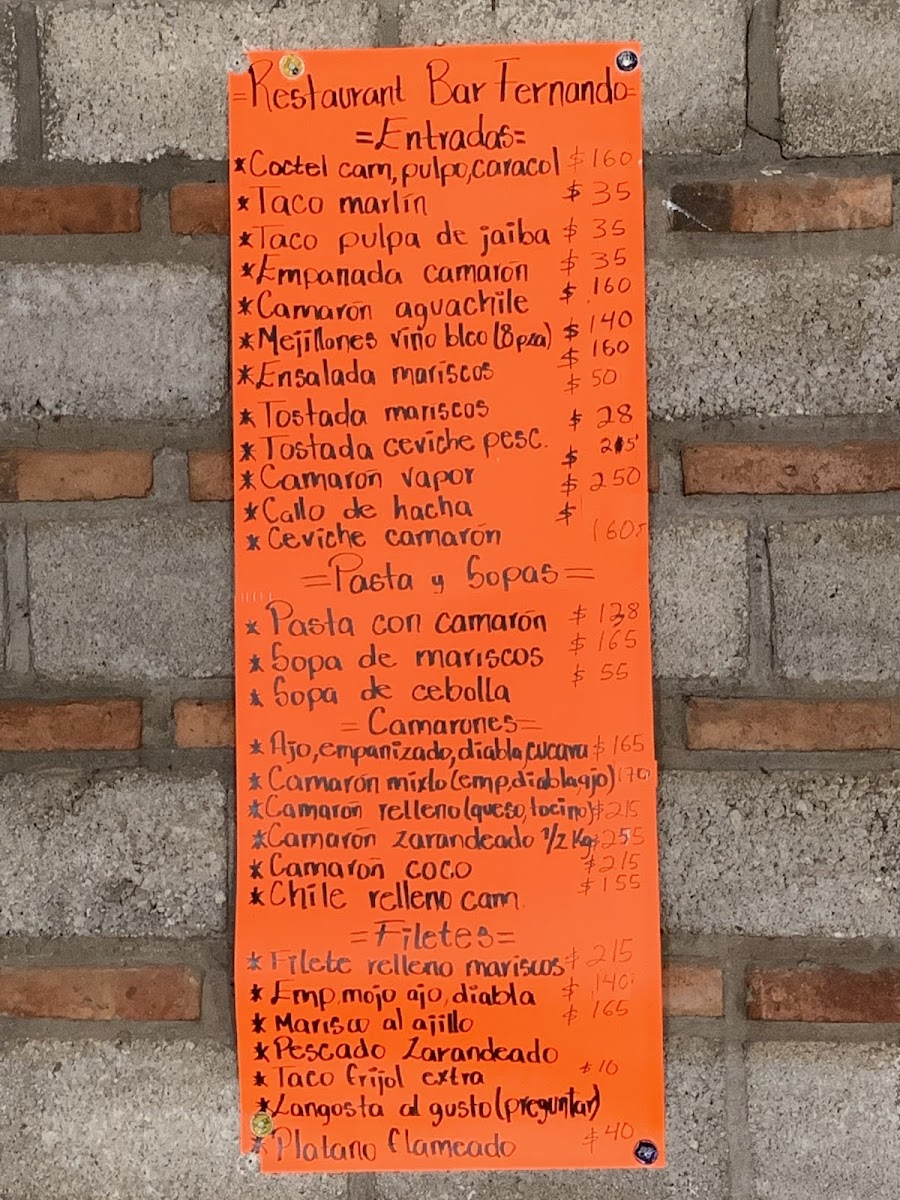 =Restaurant Bar Fernando=
=Entradas=
*Coctel cam, pulpo, caracol $160
*Taco marlín $35
*Taco pulpa de jaiba $35
*Empanada camarón $35
*Camarón aguachile $160
*Mejillones vino blco (8 pza) $140
*Ensalada mariscos $160
*Tostada mariscos $50
*Tostada ceviche pesc. $28
*Camarón vapor $215
*Callo de hacha $250
*Ceviche camarón $160
=Pasta y Sopas=
*Pasta con camarón $128
*Sopa de mariscos $165
*Sopa de cebolla $55
=Camarones=
*Ajo, empanizado, diabla, $165
*Camarón mixto (emp, diabla, ajo) 170
*Camarón relleno (queso, tocino) $215
*Camarón zarandeado 1/2 Kg $255
*Camarón coco $215
*Chile relleno cam. $155
=Filetes=
*Filete relleno mariscos $215
*Emp, mojo ajo, diabla $140
*Marisco al ajillo $165
*Pescado Zarandeado
*Taco frijol extra $10
*Langosta al gusto (preguntar)
*Platano flameado $40